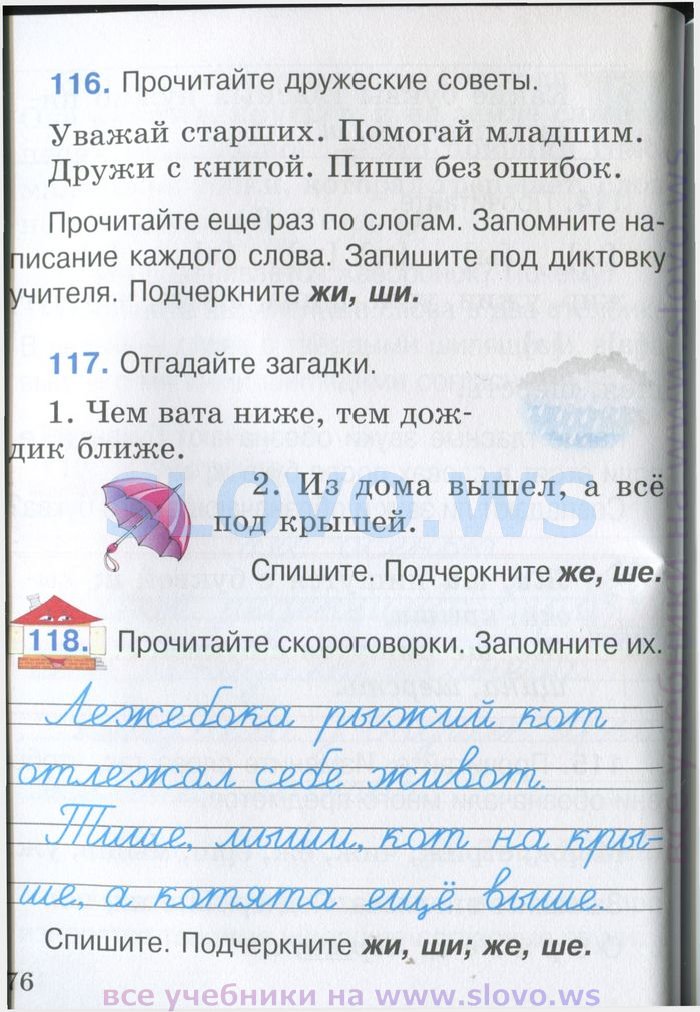 116. Прочитайте дружеские советы.
Уважай старших. Помогай младшим.
Дружи с книгой. Пиши без ошибок.
Прочитайте еще раз по слогам. Запомните на-
писание каждого слова. Запишите под диктовку
учителя. Подчеркните жи, ши.
117. Отгадайте загадки.
1. Чем вата ниже, тем дож-
дик ближе.
SLOVO.WS
2. Из дома вышел, а всё
под крышей.
Спишите. Подчеркните же, ше.
118. Прочитайте скороговорки. Запомните их.
Лежебока рыжий кот
отлежал себе живот.
Тише, мыши, кот на кры-
ше, а котята ещё выше.
Спишите. Подчеркните жи, ши; же, ше.
76
все учебники на www.slovo.ws